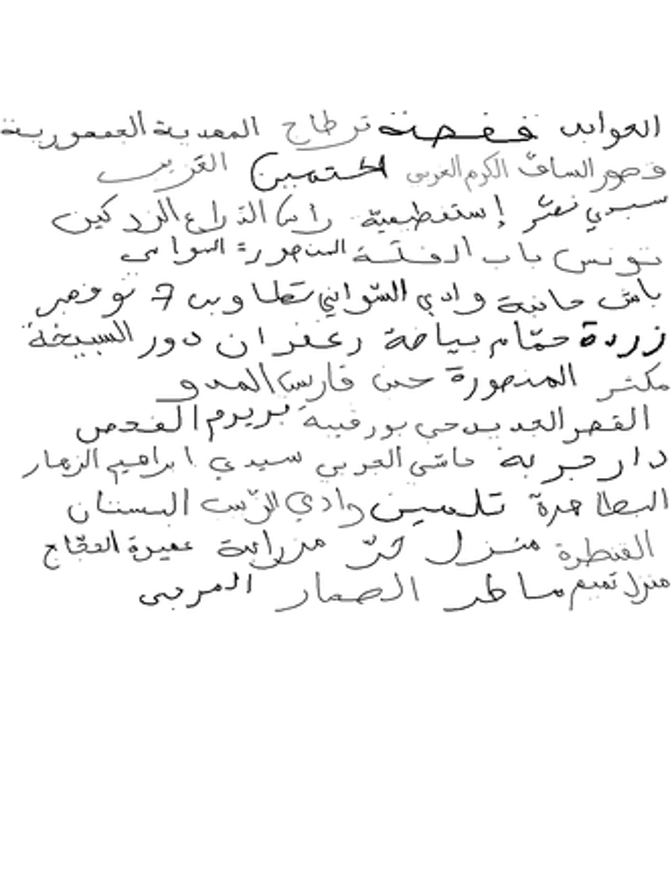 العوابد قفصة قرطاج المهدية الجمهورية
قصور الساف الكرم الغربي الختمين الغريب
سيدي نصر إستفطيمية رأس الذراع الردكين
تونس باب الفلة المنصورة السواسي
باش حانبة وادي الشواني تطاوين 7 نوفمبر
زردة حمّام بياضة زعفران دور السبيخة
مكثر المنصورة حسن فارس المدو
القصر الجديد حي بورقيبة بريرم الفحص
دار جربة حاشي الجربي سيدي ابراهيم الزهار
البطاحرة تلمين وادي الزيت البستان
القنطرة منزل حرّ مزراية عميرة الحجّاج
منزل تميم ماطر الصمار